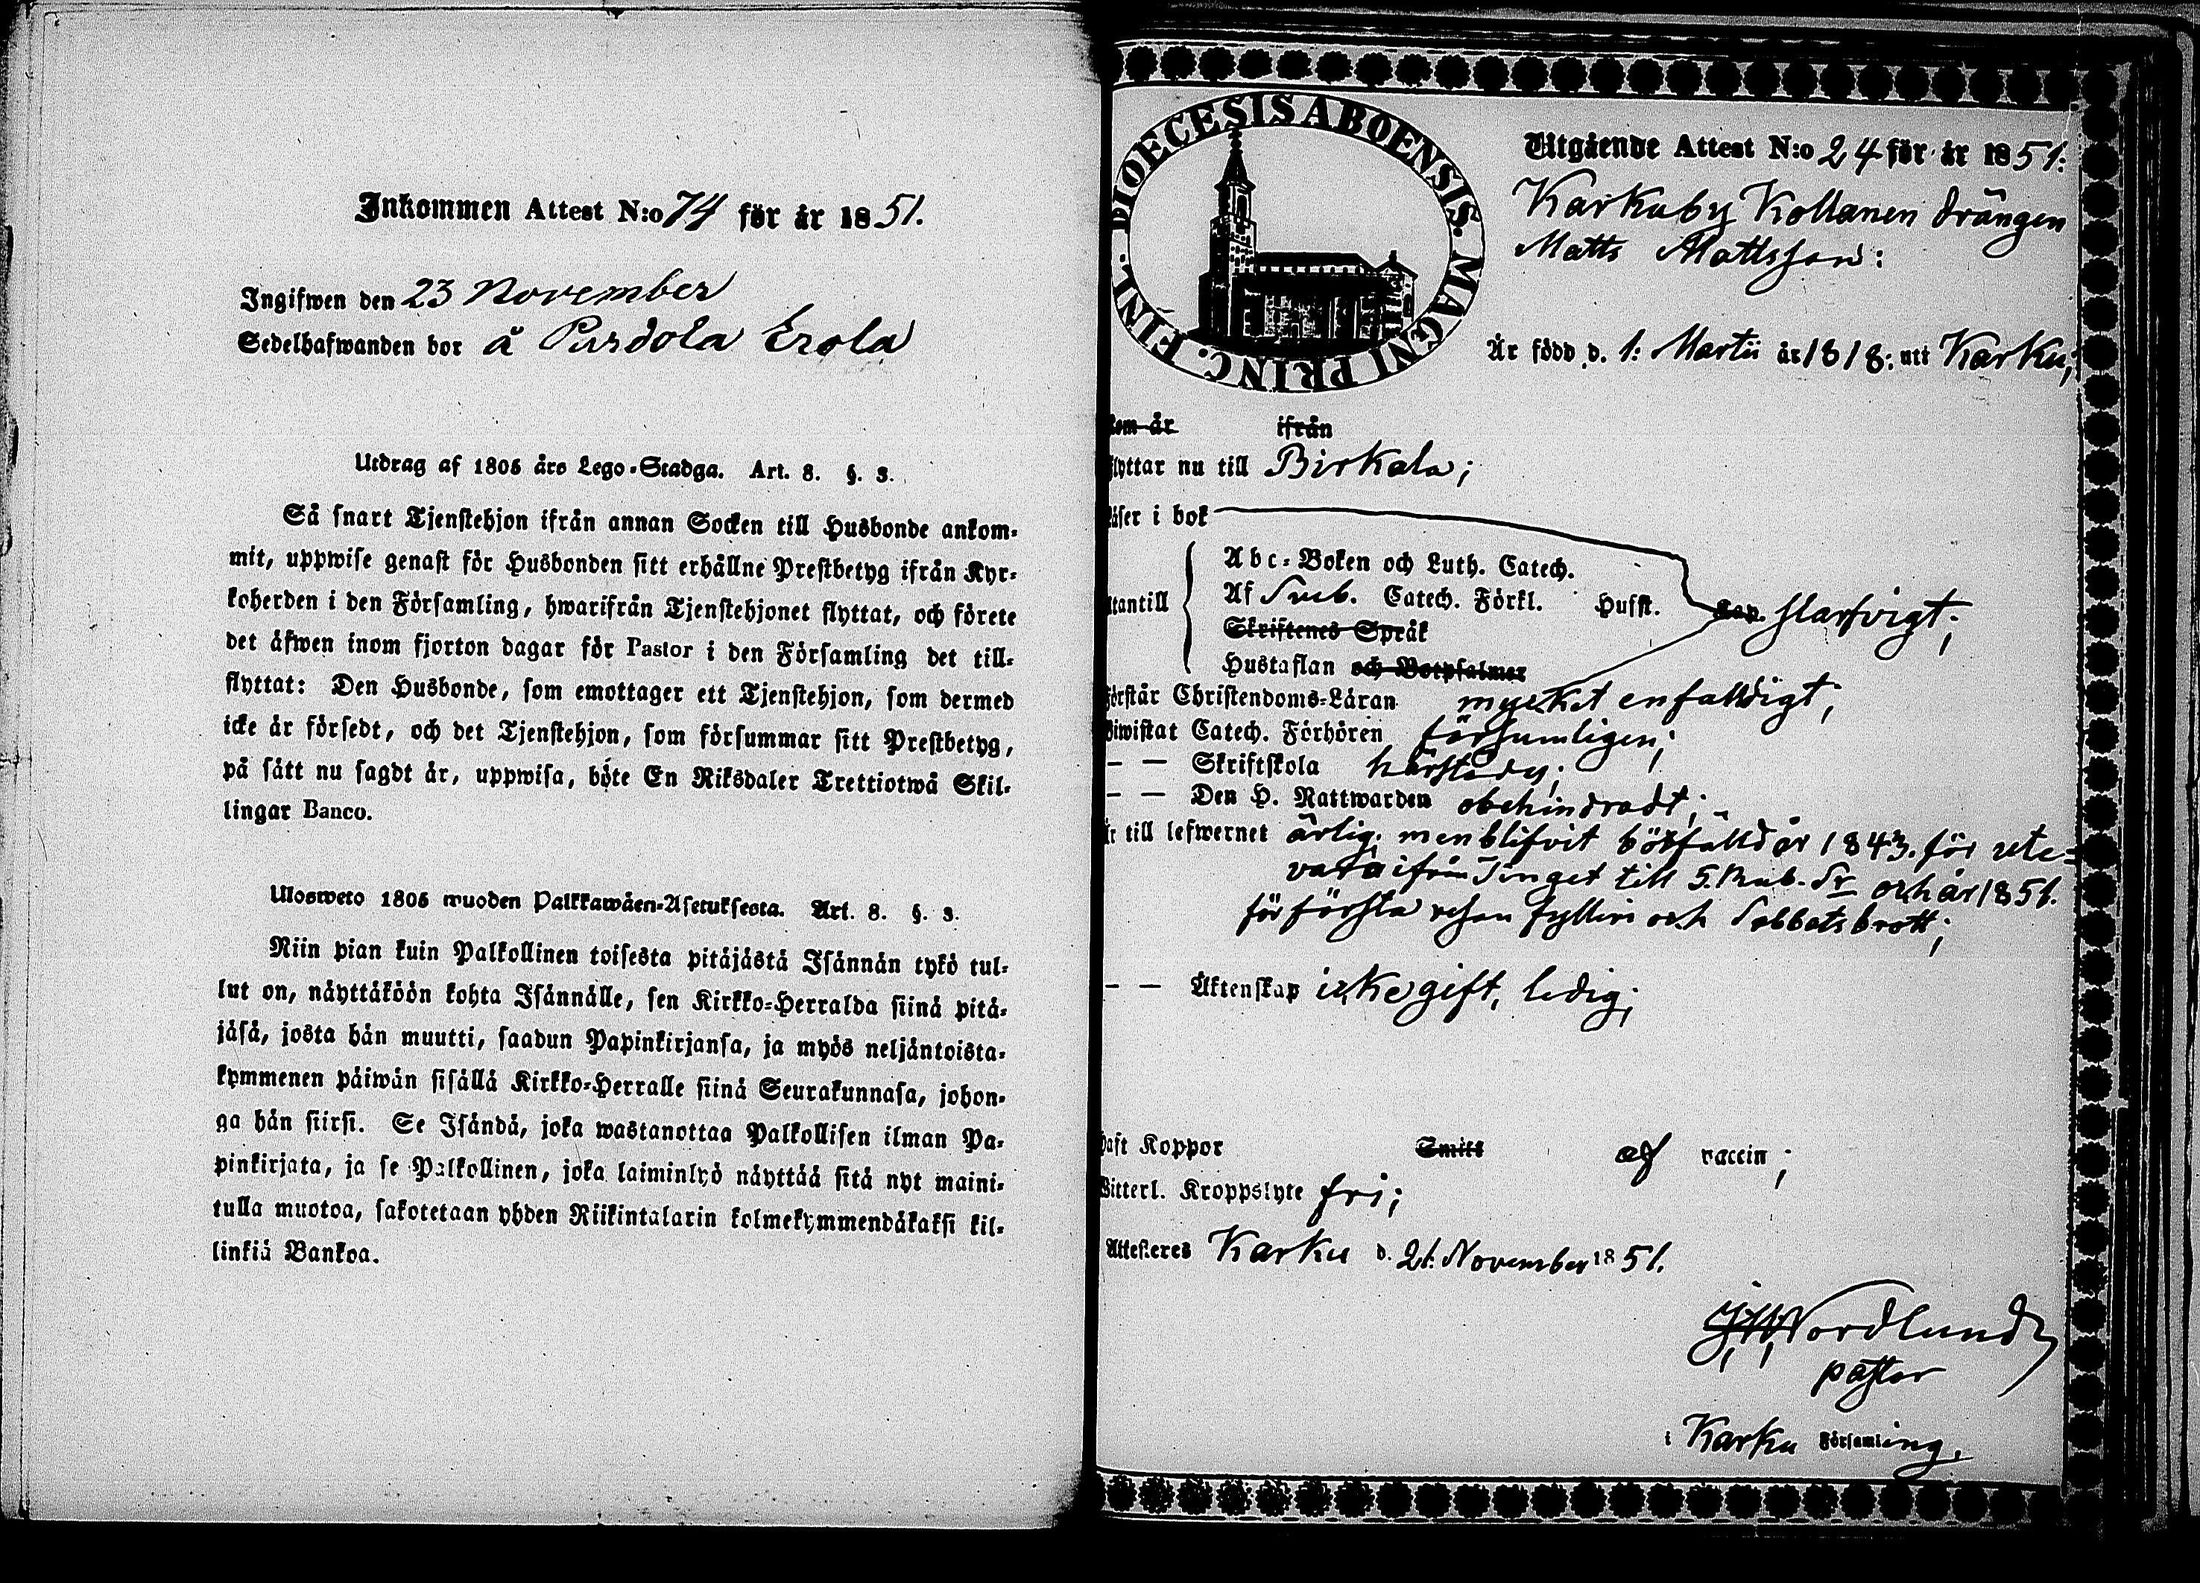 Inkommen Attest N:o 74 för år 1851.
Ingifwen den 23 November
Sedelhafwanden bor å Pursola Erola
Utdrag af 1805 års Lego-Stadga. Art. 8. §. 3.
Så snart Tjenstehjon ifrån annan Socken till Husbonde ankom-
mit, uppwise genast för Husbonden sitt erhållne Prestbetyg ifrån Kyr-
koherden i den Församling, hwarifrån Tjenstehjonet flyttat, och förete
det äfwen inom fjorton dagar för Pastor i den Församling det till-
flyttat: Den Husbonde, som emottager ett Tjenstehjon, som dermed
icke är försedt, och det Tjenstehjon, som försummar sitt Prestbetyg,
på sätt nu sagdt är, uppwisa, böte En Riksdaler Trettiotwå Skil-
lingar Banco.
Ulosweto 1805 wuoden Palkkawäen-Asetuksesta. Art. 8. §. 3.
Niin pian kuin Palkollinen toisesta pitäjästä Isännän tykö tul-
lut on, näyttäköön kohta Isännälle, sen Kirkko-Herralda siinä pitä-
jäsä, josta hän muutti, saadun Papinkirjansa, ja myös neljäntoista-
kymmenen päiwän sisällä Kirkko-Herralle siinä Seurakunnasa, johon-
ga hän siirsi. Se Isändä, joka wastanottaa Palkollisen ilman Pa-
pinkirjata, ja se Palkollinen, joka laiminlyö näyttää sitä nyt maini-
tulla muotoa, sakotetaan yhden Riikintalarin kolmekymmendäkaksi kil-
linkiä Bankoa.
DIOECESIS ABOENSIS. MAGNI PRINC. FINL.
Utgående Attest N:o 24 för år 1851:
Karkuby Kollanen drängen
Matts Mattsson:
Är född d. 1: Martii år 1818: uti Karku;
kom år ifrån
flyttar nu till Birkala;
läser i bok
Abc-Boken och Luth. Catech.
utantill Af Sveb. Catech. Förkl. Husst. slarfvigt;
Skriftenes Språk
Hustaflan och Botpsalmer
förstår Christendoms-Läran mycket enfalldigt;
Biwistat Catech. Förhören försumligen;
— — Skriftskola härstädes;
— — Den H. Nattwarden obehindradt;
Är till lefwernet ärlig, men blifvit bötfälld år 1843. för ute-
vara ifrån Tinget till 5. Rub. Sr och år 1851.
för första resan fylleri och Sabbatsbrott;
— — Äktenskap icke gift, ledig;
Haft Koppor Smitt af vaccin;
Witterl. Kroppslyte fri;
Attesteres Karku d. 21. November 1851.
Nordlund
pastor
i Karku Församling.